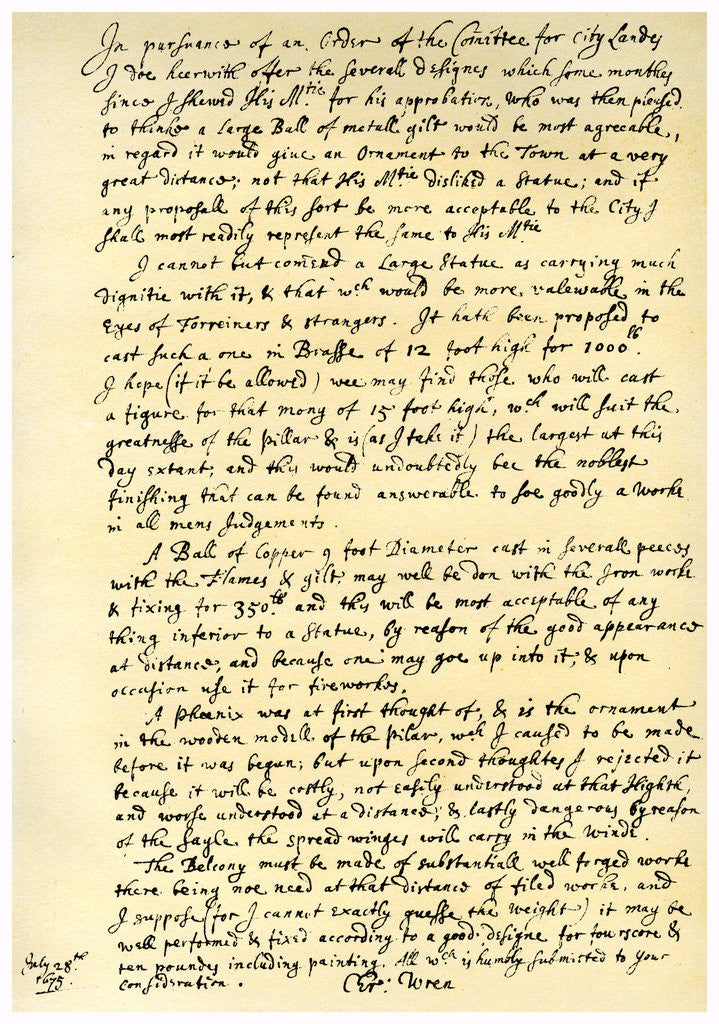 In pursuance of an Order of the Comittee for City Landes
I doe heerwith offer the severall designes which some monthes
since I shewed His Mtie for his approbation, who was then pleased
to thinke a Large Ball of metall gilt would be most agreeable,
in regard it would give an Ornament to the Town at a very
great distance; not that His Mtie disliked a Statue; and if
any proposall of this sort be more acceptable to the City I
shall most readily represent the same to His Mtie
I cannot but comend a Large Statue as carrying much
dignitie with it, & that wch would be more valewable in the
Eyes of Forreiners & strangers. It hath been proposed to
cast such a one in Brasse of 12 foot high for 1000lb.
I hope (if it be allowed) wee may find those who will cast
a figure for that mony of 15 foot high, wch will suit the
greatnesse of the pillar & is (as I take it) the largest at this
day extant; and this would undoubtedly bee the noblest
finishing that can be found answerable to soe goodly a worke
in all mens Judgements.
A Ball of Copper 9 foot Diameter cast in severall peeces
with the Flames & gilt, may well be don with the Iron worke
& fixing for 350lb and this will be most acceptable of any
thing inferior to a Statue, by reason of the good appearance
at distance, and because one may goe up into it; & upon
occasion use it for fireworkes.
A phœnix was at first thought of, & is the ornament
in the wooden modell of the pilar, wch I caused to be made
before it was begun; but upon second thoughtes I rejected it
because it will be costly, not easily understood at that Highth,
and worse understood at a distance; & lastly dangerous by reason
of the sayle the spread winges will carry in the winde.
The Belcony must be made of substantiall well forged worke
there being noe need at that distance of filed worke, and
I suppose (for I cannot exactly guesse the weight) it may be
well performed & fixed according to a good designe for fourscore &
ten poundes including painting. All wch is humbly submitted to your
consideration.
July 28th
1675.
Chr: Wren